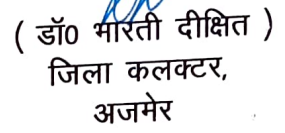 ( डॉ0 भारती दीक्षित )
जिला कलक्टर,
अजमेर